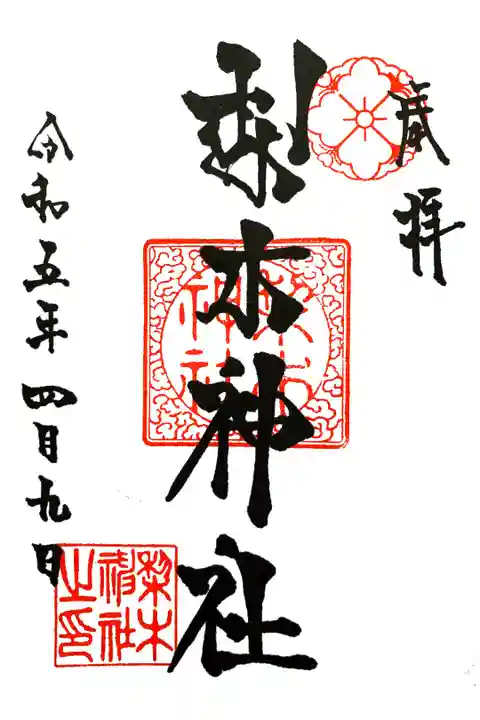 奉拝
梨木神社
梨木
神社
令和五年四月九日
梨木
神社
之印